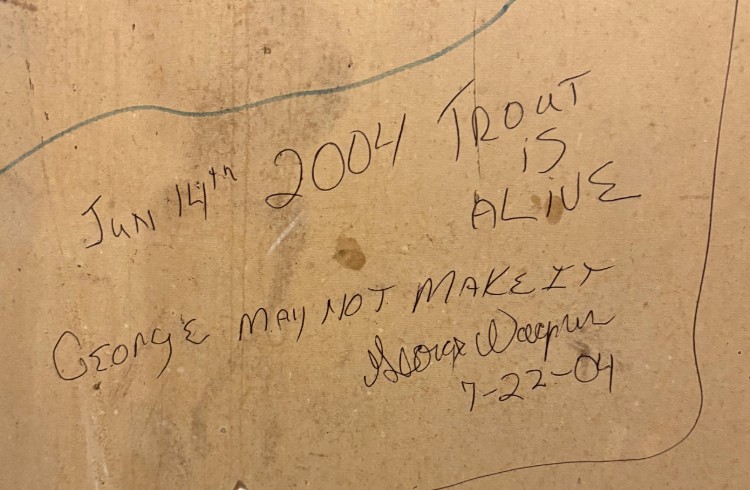 Jun 14th 2004 TROUT
iS
ALiVE
GEORgE MAY NOT MAKE IT
George
7-22-04